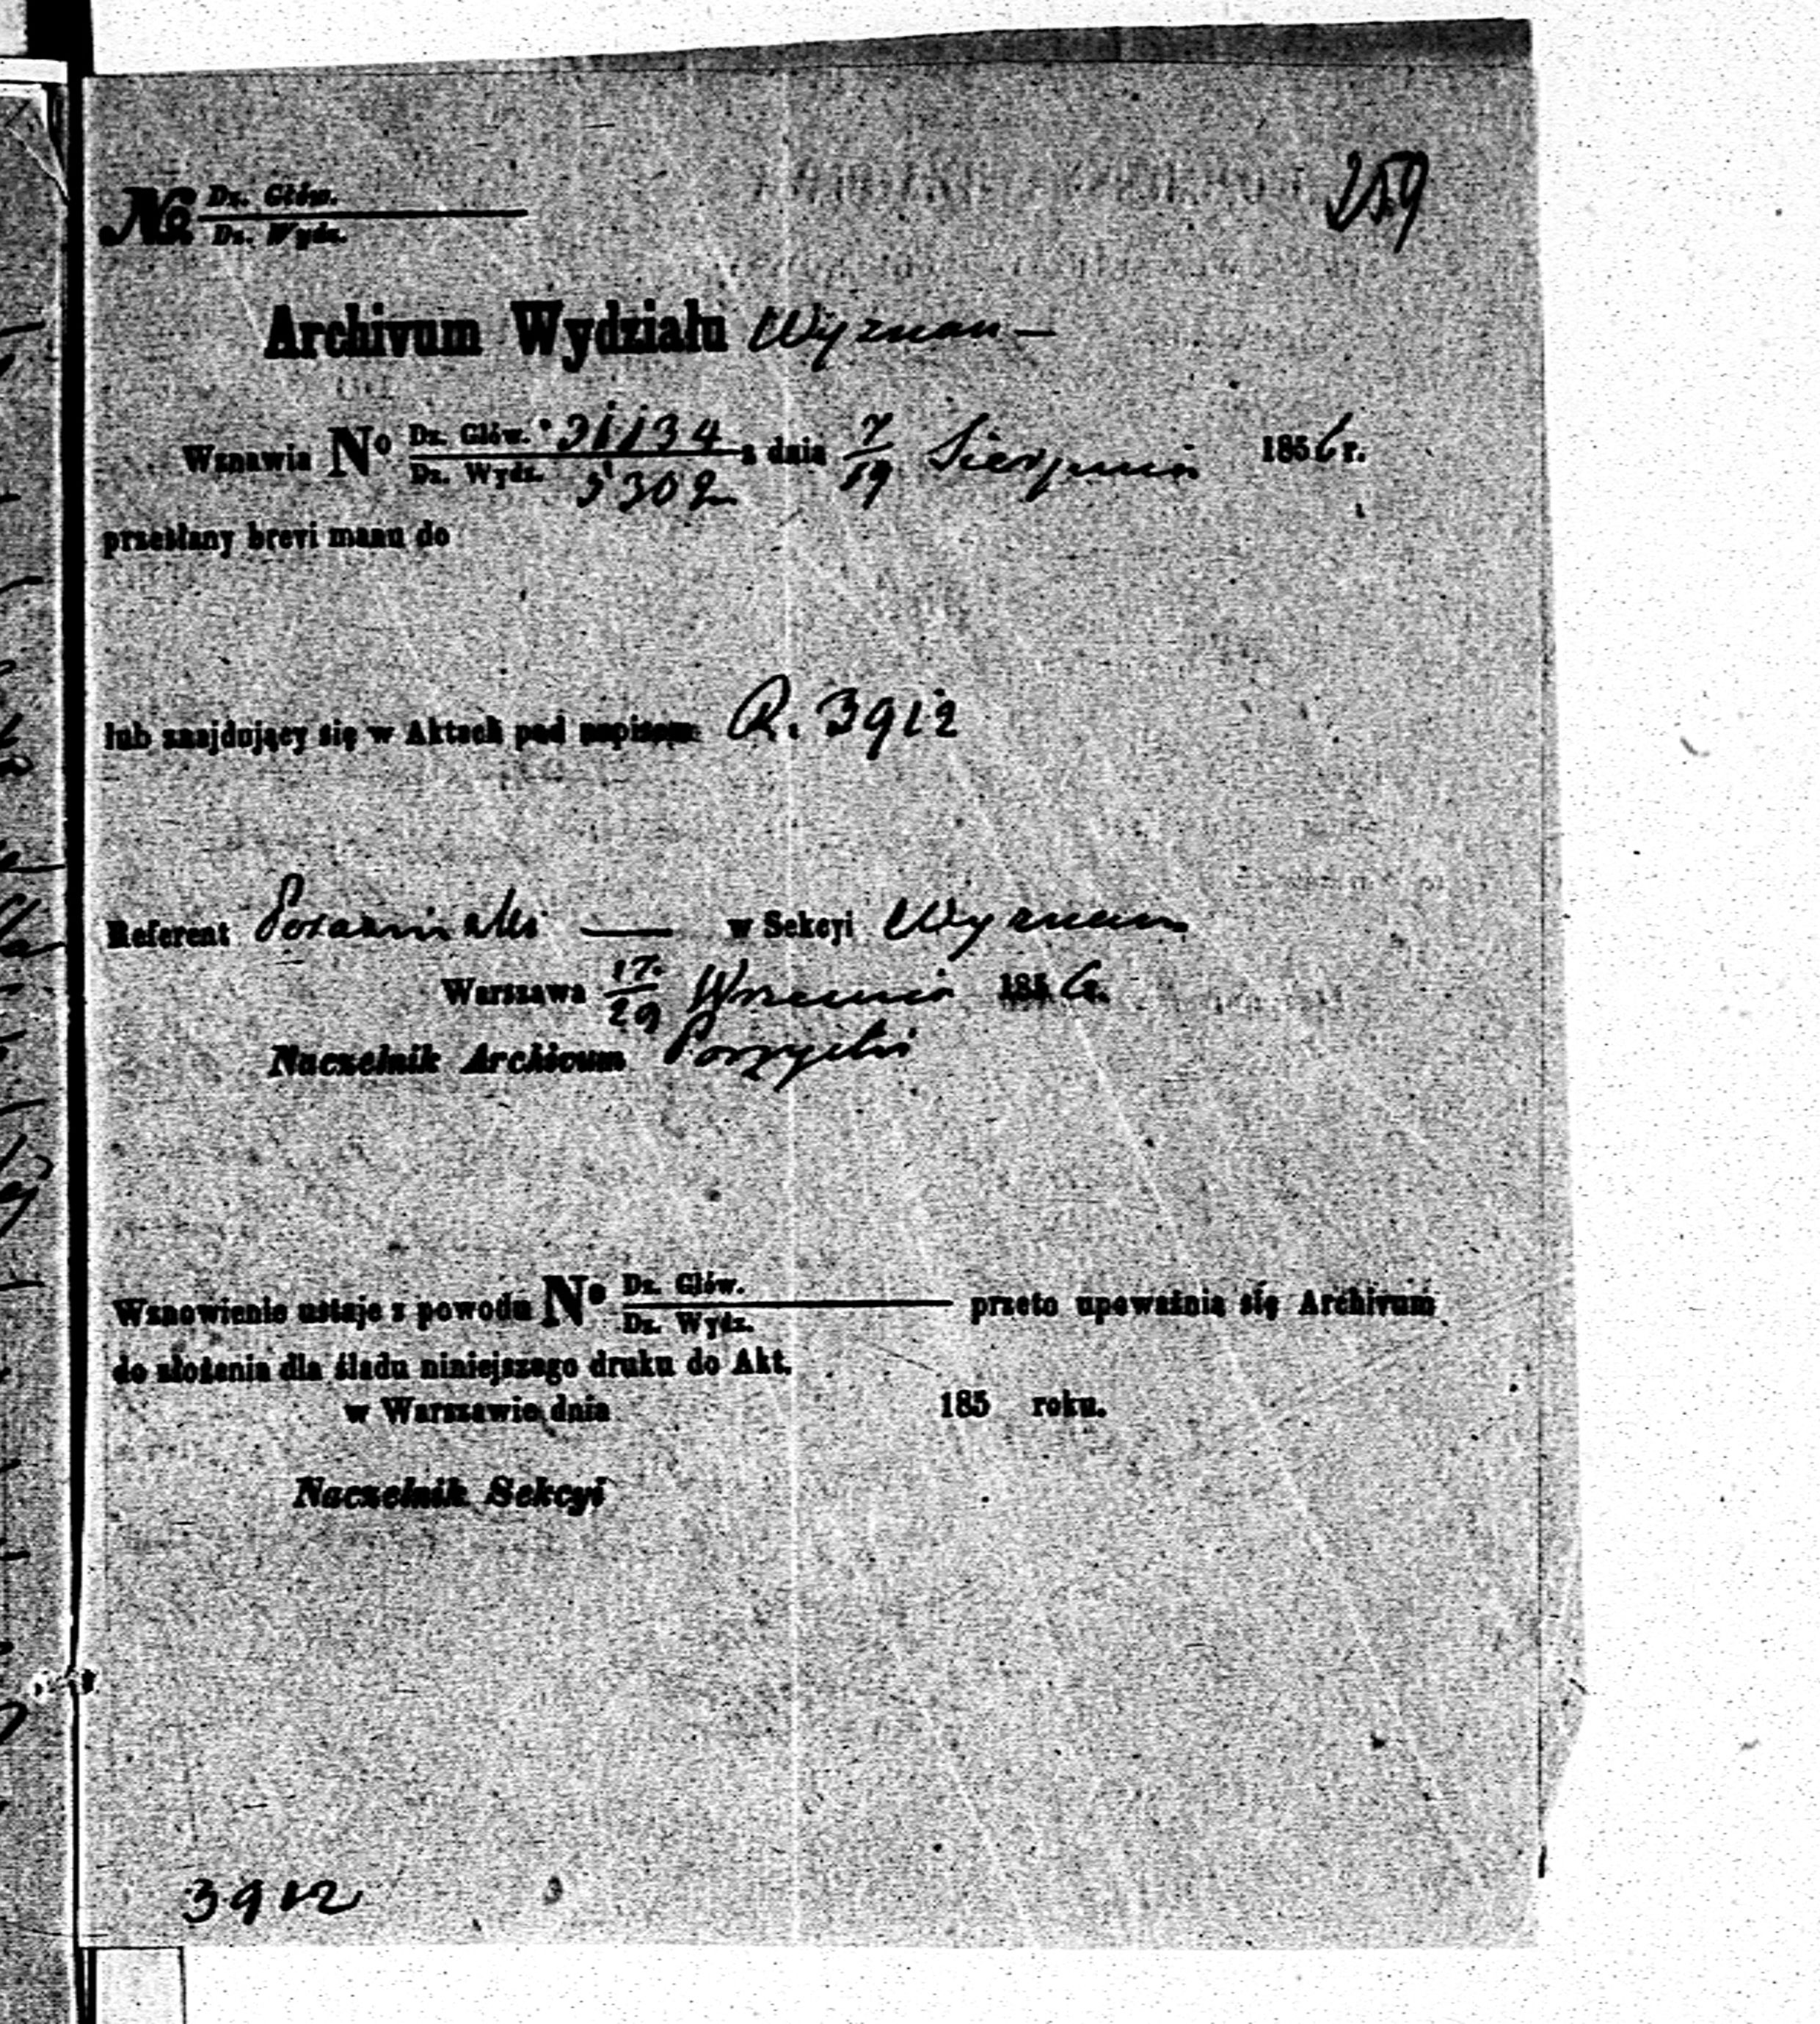 259
№ Dz. Głów.
Dz. Wydz.
Archivum Wydziału Wyznań —
Wznawia Nº Dz. Głów. 31134 z dnia 7/19 Sierpnia 1856 r.
Dz. Wydz. 5302
przesłany brevi manu do
lub znajdujący się w Aktach pod napisem R. 3912
Referent — w Sekcyi Wyznań
Warszawa 17/29 Września 1856 r.
Naczelnik Archivum
Wznowienie ustaje z powodu Nº Dz. Głów. przeto upoważnia się Archivum
Dz. Wydz.
do złożenia dla śladu niniejszego druku do Akt.
w Warszawie dnia 185 roku.
Naczelnik Sekcyi
3912